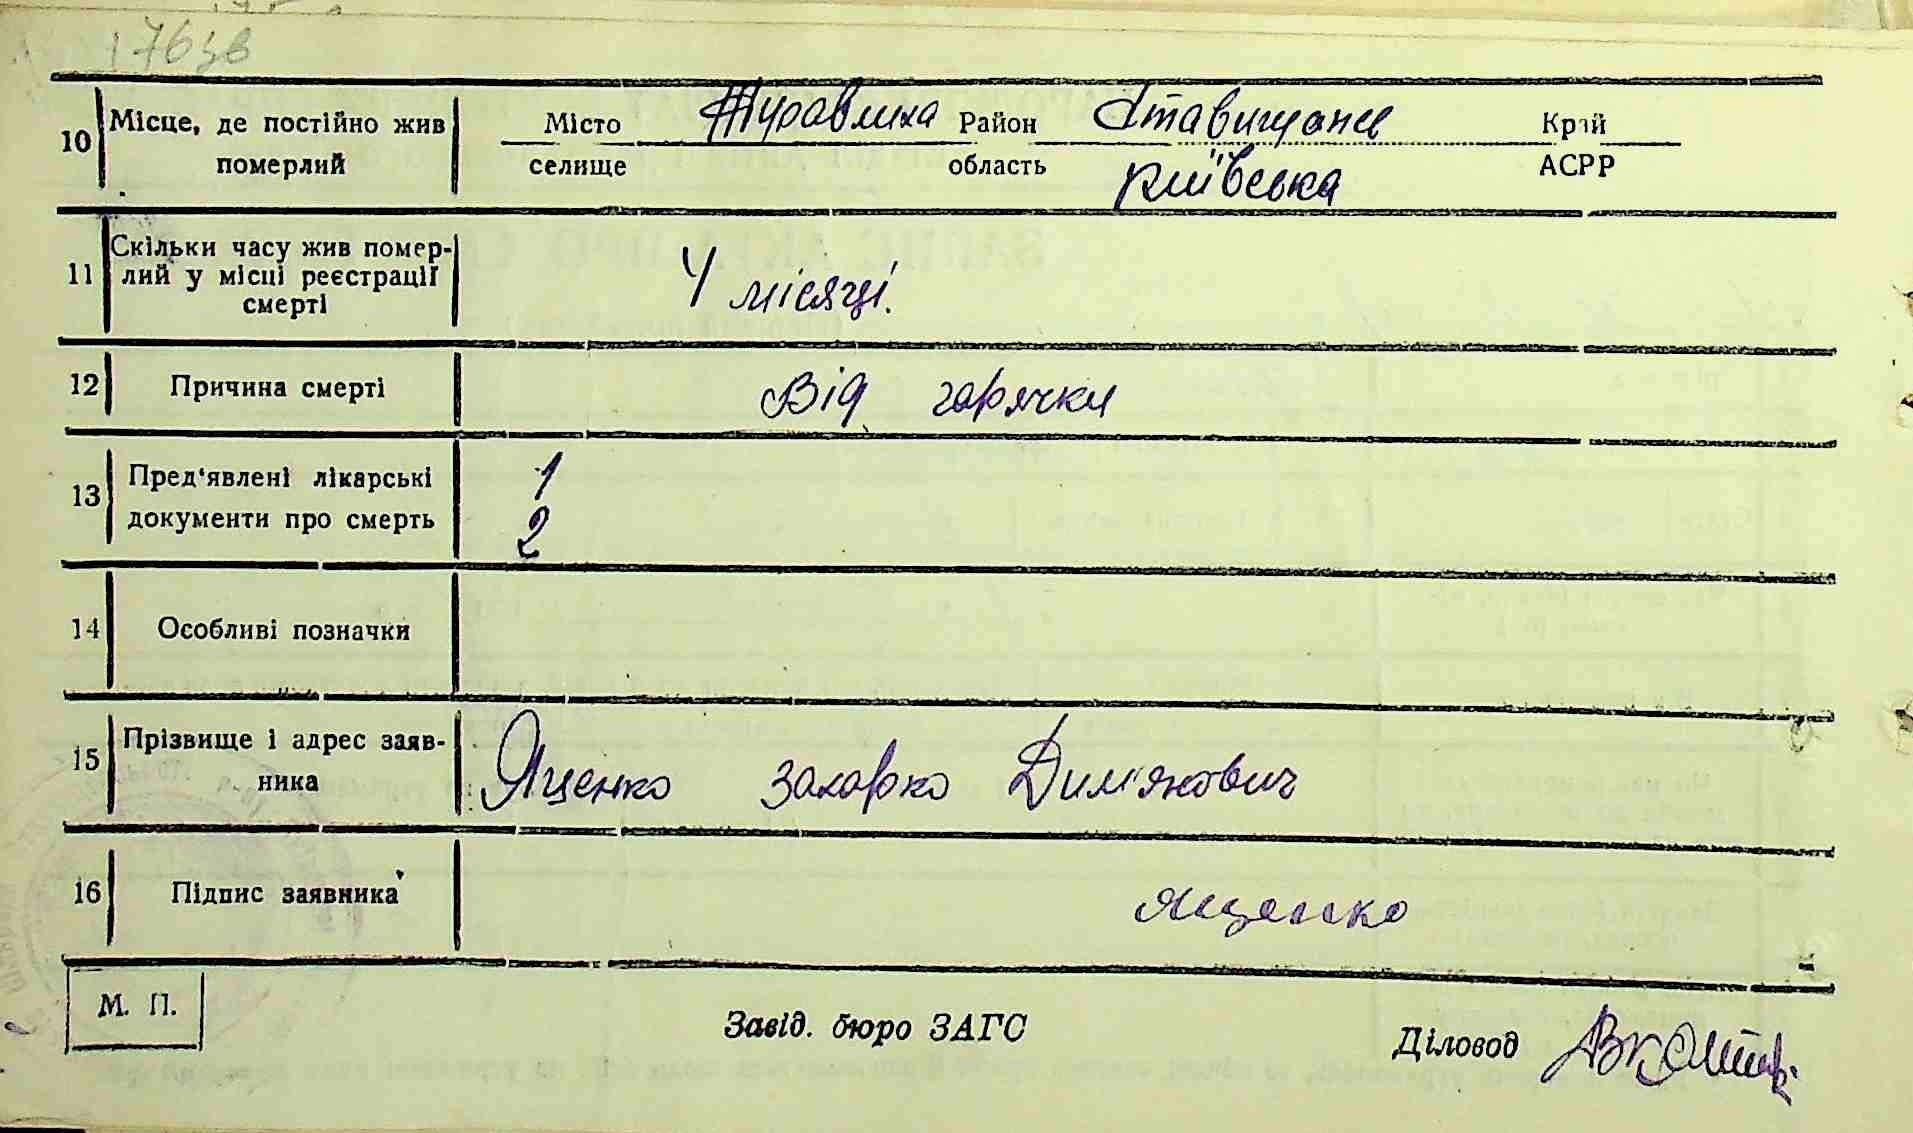 1763в
10 Місце, де постійно жив померлий
Місто Журавлиха Район Ставищанс Край
селище область Київська АСРР
11 Скільки часу жив помер-
лий у місці реєстрації
смерті
4 місяці.
12 Причина смерті Від гарячки
13 Пред'явлені лікарські
документи про смерть
1
2
14 Особливі позначки
15 Прізвище і адрес заяв-
ника
Яценко Захарко Дим'янович
16 Підпис заявника Яценко
М. П.
Завід. бюро ЗАГС Діловод